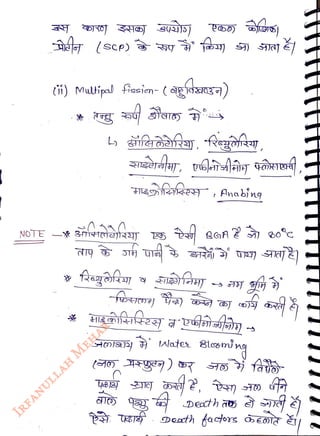 इस कारण इसका उपयोग एकल कोशिका
प्रोटीन (SCP) के रूप में किया जा जाता है।
(ii) Multipal fission- (बहुविखण्डन)
* तन्तु रूपी शैवाल में :→
↳ ऑसिलेटोरिया, रिव्युलेरिया,
साइटोनीमा, एफीनोजीनोन फ्लोसएक्वी,
माइक्रोसिस्टिस, Anabina
NOTE —* ऑसिलेटोरिया एक ऐसी BGA है जो 80°C
ताप के गर्म पानी के झरनों में पाया जाता है।
* रिव्युलेरिया व साइटोनिमा → नम भूमि में
फिसलन पैदा करने का कार्य करती है।
* माइक्रोसिस्टिस व एफीनोजीनोन →
जलाशय में Water Blooming
(जल प्रस्फुटन) कर जल में विषैले
पदार्थ स्राव करती है, ऐसा जल पीने
वाले पशु की Death तक हो जाती है।
ऐसे पदार्थ Death factors कहलाते है।
IRFANULLAH MEHAR